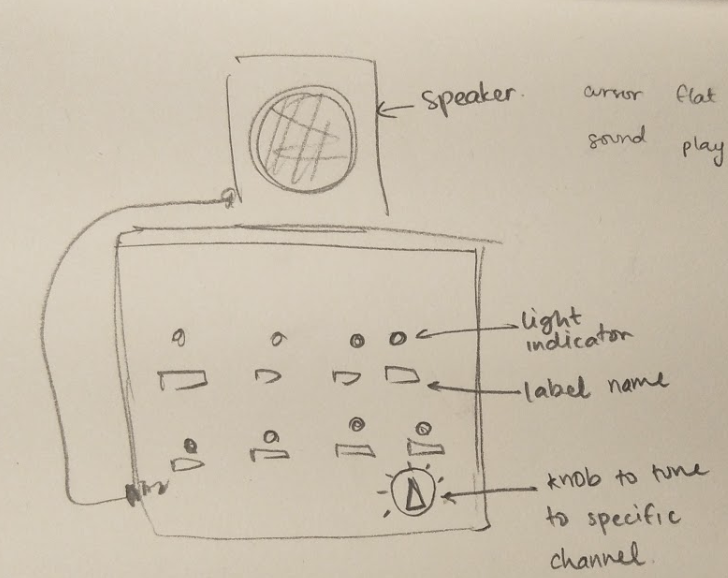 speaker.
cursor flat
sound play
light
indicator
label name
knob to tune
to specific
channel.